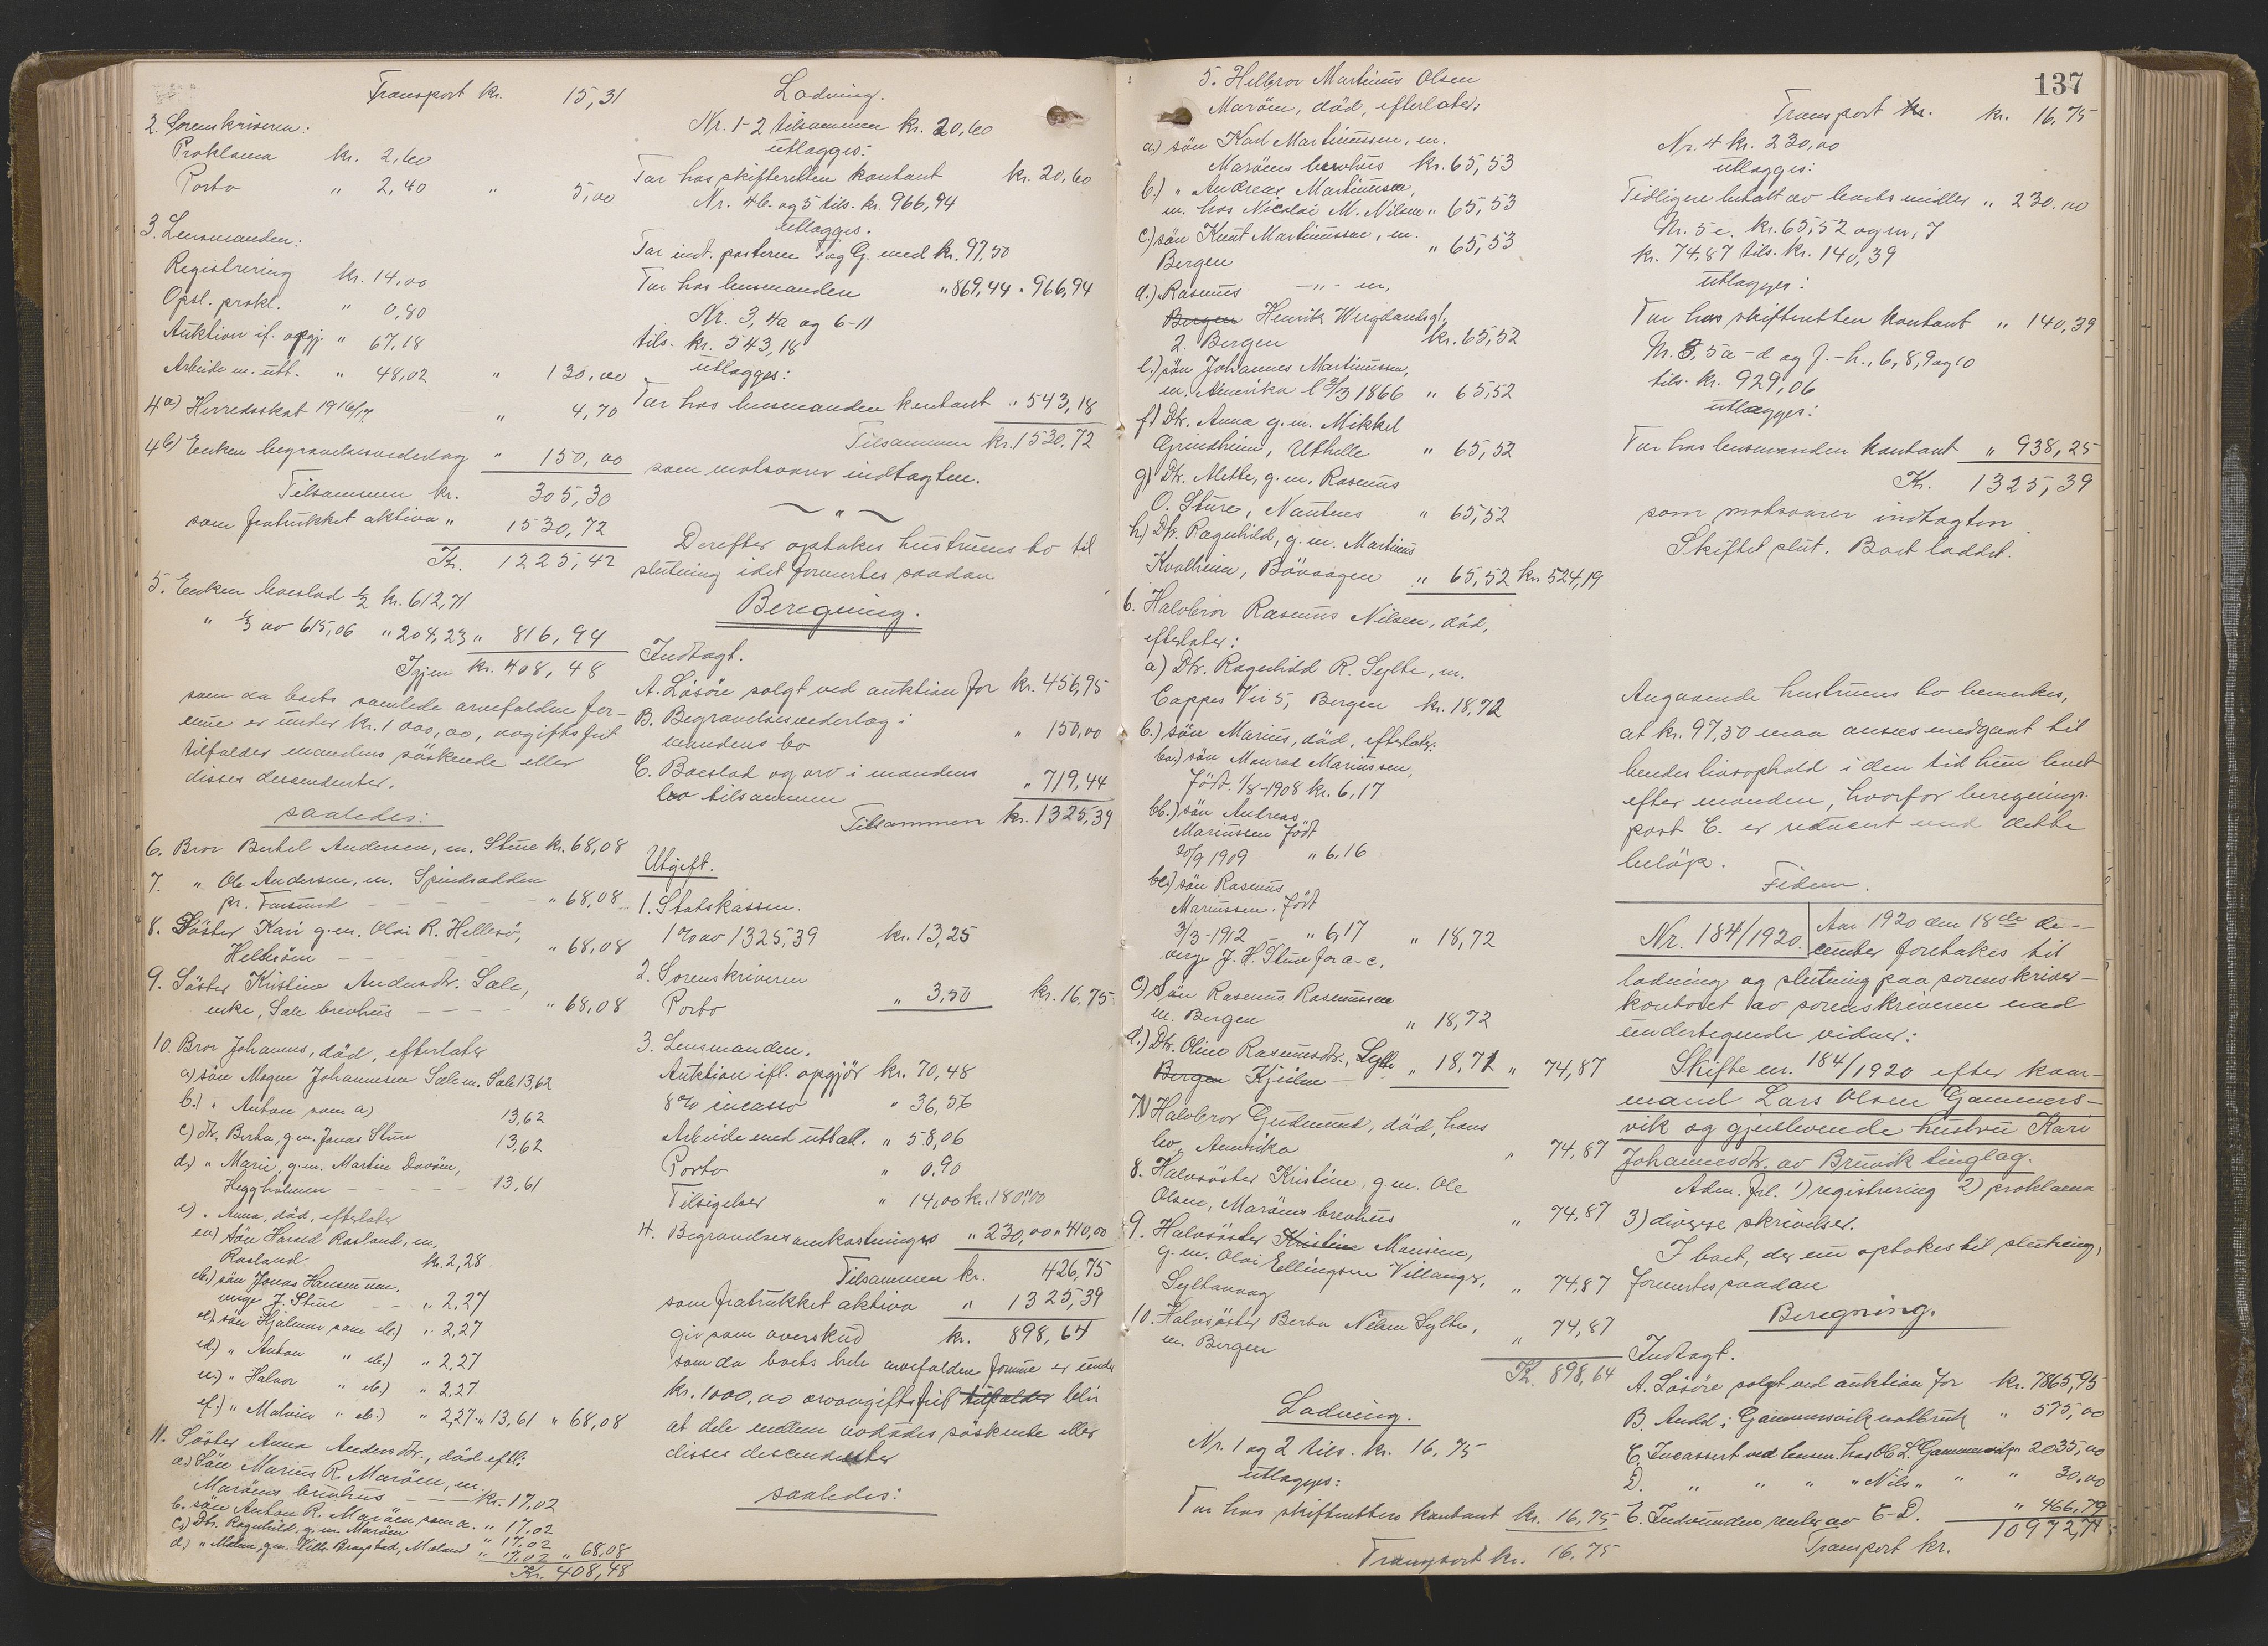 Transport kr. 15,31
2. Sorenskriveren:
Proklama kr. 2,60
Porto " 2,40 " 5,00
3. Lensmanden:
Registrering kr. 14,00
Opsl. prokl. " 0,80
Auktion if. opgj. " 67,18
Arbeide m. utl. " 48,02 " 130,00
4a) Herredsskat 1916/17 " 4,70
4b) Enken begravelsesvederlag " 150,00
Tilsammen kr. 305,30
som fratrukket aktiva " 1530,72
Kr. 1225,42
5. Enken boeslod 1/2 kr. 612,71
" 1/3 av 615,06 " 204,23 " 816,94
Igjen kr. 408,48
som da boets samlede arvefaldne for-
mue er under kr. 1000,00, avgiftsfrit
tilfalder mandens söskende eller
disses descendenter.
saaledes:
6. Bror Bertel Andersen, m. Sture kr. 68,08
7. " Ole Andersen, m. Spindsodden
pr. Farsund " 68,08
8. Söster Kari g.m. Olai R. Hellesö,
Heldesöen " 68,08
9. Söster Kristine Andersdtr. Sæle,
enke, Sæle brevhus " 68,08
10. Bror Johannes, död, efterlater
a) sön Mogens Johannesen Sæle m. Sæle 13,62
b.) " Anton som a) 13,62
c) dtr. Berta, g.m. Jonas Sture 13,62
d) " Marie, g.m. Martin Davöen,
Heggholmen 13,61
e) " Anna, död, efterlater
ea) sön Harald Rosland, m.
Rosland kr. 2,28
eb.) sön Jonas Hansen um.
verge J. Sture " 2,27
ec) sön Hjalmar som eb.) " 2,27
ed) " Anton " eb.) " 2,27
ee) " Halvor " eb.) " 2,27
ef.) " Malvin " eb.) " 2,27 " 13,61 " 68,08
11. Söster Anna Andersdtr., död eftl:
a) Sön Marius R. Maröen, m.
Maröens brevhus kr. 17,02
b. sön Anton R. Maröen som a. " 17,02
c) Dtr. Ragnhild, g.m. Maröen " 17,02
d) " Malene, g.m. Villh. Bragstad, Moland " 17,02 " 68,08
Kr. 408,48
Lodning.
Nr. 1-2 tilsammen kr. 20,60
utlægges:
Tar hos skifteretten kontant kr. 20,60
Nr. 4b. og 5 tils. kr. 966,94
utlægges.
Tar indt. posterne F og G. med kr. 97,50
Tar hos lensmanden " 869,44 " 966,94
Nr. 3, 4a og 6-11
tils. kr. 543,18
utlægges:
Tar hos lensmanden kontant " 543,18
Tilsammen kr. 1530,72
som motsvarer indtægten.
Derefter optakes hustruens bo til
slutning idet formertes saadan
Beregning.
Indtægt.
A. Lösöre solgt ved auktion for kr. 455,95
B. Begravelsesvederlag i
mandens bo " 150,00
C. Boeslod og arv i mandens
bo tilsammen " 719,44
Tilsammen kr. 1325,39
Utgift.
1. Statskassen.
1% av 1325,39 kr. 13,25
2. Sorenskriveren
Porto " 3,50 kr. 16,75
3. Lensmanden.
Auktion ifl. opgjör kr. 70,48
8% incasso " 36,56
Arbeide med utlæll. " 58,06
Porto " 0.90
Tilsigelser " 14,00 kr. 180,00
4. Begravelsesomkostninger " 230,00 " 410,00
Tilsammen kr. 426,75
som fratrukket aktiva " 1325,39
gir som overskud kr. 898,64
som da boets hele arvefaldne formue er under
kr. 1000,00 arveavgiftsfrit tilfalder blir
at dele mellem avdödes söskende eller
disses descendenter
saaledes:
137
5. Helbror Martinus Olsen
Maröen, död, efterlater:
a) sön Karl Martinussen, m.
Maröens brevhus kr. 65,53
b.) " Andreas Martinussen,
m. hos Nicolai M. Nilsen " 65,53
c.) sön Knut Martinussen, m.
Bergen " 65,53
d.) " Rasmus —"— m.
Bergen Henrik Wergelandsgt.
2. Bergen kr. 65,52
e.) sön Johannes Martinussen,
m. Amerika f 3/3 1866 " 65,52
f) Dtr. Anna g.m. Mikkel
Grindheim, Uthelle " 65,52
g) Dtr. Mette, g.m. Rasmus
O. Sture, Nautnes " 65,52
h.) Dtr. Ragnhild, g.m. Martinus
Kvalheim, Bövaagen " 65,52 kr. 524,19
6. Halvbror Rasmus Nilsen, död,
efterlater:
a) Dtr. Ragnhild R. Sylte, m.
Cappes Vei 5, Bergen kr. 18,72
b.) sön Marius, död, efterlater:
ba.) sön Monrad Mariussen,
Födt. 1/8-1908 kr. 6,17
bb.) sön Andreas
Mariussen födt
20/9 1909 " 6,16
bc.) sön Rasmus
Mariussen. födt
3/3-1912 " 6,17 " 18,72
verge J. H. Sture for a-c.
c) Sön Rasmus Rasmussen
m. Bergen " 18,72
d.) Dtr. Oline Rasmusdtr., Sylte
Bergen Kjeilen " 18,71 " 74,87
7. Halvbror Gudmund, död, hans
bo, Amerika " 74,87
8. Halvsöster Kristine, g.m. Ole
Olsen, Maröens brevhus " 74,87
9. Halvsöster Kristine Monsine,
g.m. Olai Ellingsen Villanger,
Syltavaag " 74,87
10. Halvsöster Berta Nilsen Sylte,
m. Bergen " 74,87
Kr. 898,64
Lodning.
Nr. 1 og 2 tils. kr. 16,75
utlægges:
Tar hos skifteretten kontant kr. 16,75
Transport kr. 16,75
Transport kr. kr. 16,75
Nr. 4 kr. 230,00
utlægges:
Tidligere betalt av boets midler " 230,00
Nr. 5 e. kr. 65,52 og nr. 7
kr. 74,87 tils. kr. 140,39
utlægges:
Tar hos skifteretten kontant " 140,39
Nr. 3, 5a-d og f.-h., 6, 8, 9 og 10
tils. kr. 929,06
utlægges:
Tar hos lensmanden kontant " 938,25
Kr. 1325,39
som motsvarer indtægten
Skiftet slut. Boet loddet.
Angaaende hustruens bo bemerkes,
at kr. 97,50 maa ansees medgaat til
hendes livsophold i den tid hun levet
efter manden, hvorfor beregnings-
post C. er reducert med dette
belöp.
Fidem.
Nr. 184/1920. Aar 1920 den 18de de-
cember foretokes til
lodning og slutning paa sorenskriver-
kontoret av sorenskriveren med
undertegnede vidner:
Skifte nr. 184/1920 efter kaar-
mand Lars Olsen Gammers-
vik og gjenlevende hustru Kari
Johannesdtr. av Bruvik tinglag.
Adm. frl. 1) registrering 2) proklama
3) diverse skrivelser.
I boet, der nu optokes til slutning,
formertes saadan
Beregning.
Indtægt.
A. Lösöre solgt ved auktion for kr. 7865,95
B. Andel i Gammersvik notbruk " 575,00
C. Incassert ved lensm. hos Ole L. Gammersvik " 2035,00
D. " " " " Nils " " " 30,00
E. Indvundne renter av C-D. " 466,79
Transport kr. 10972,74